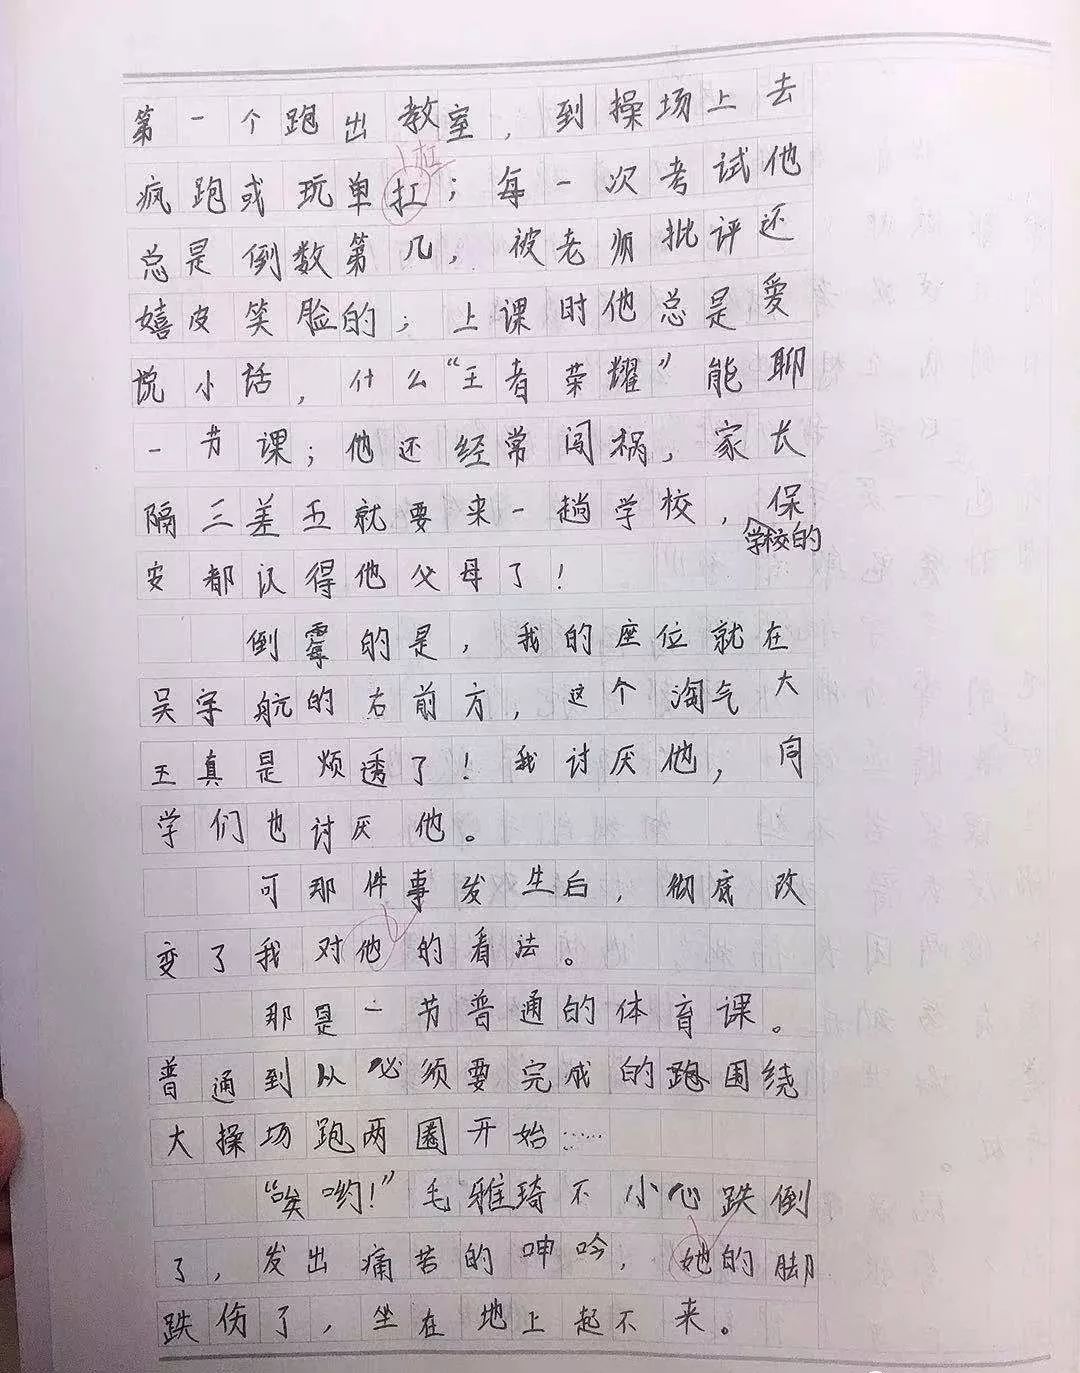 第一个跑出教室，到操场上去
杠
疯跑或玩单扛；每一次考试他
总是倒数第几，被老师批评还
嬉皮笑脸的；上课时他总是爱
说小话，什么“王者荣耀”能聊
一节课；他还经常闯祸，家长
隔三差五就要来一趟学校，保
学校的
安都认得他父母了！
倒霉的是，我的座位就在
吴宇航的右前方，这个淘气大
王真是烦透了！我讨厌他，同
学们也讨厌他。
可那件事发生后，彻底改
变了我对他的看法。
那是一节普通的体育课。
普通到从必须要完成的跑围绕
大操场跑两圈开始……
“唉哟！”毛雅琦不小心跌倒
了，发出痛苦的呻吟，她的脚
跌伤了，坐在地上起不来。